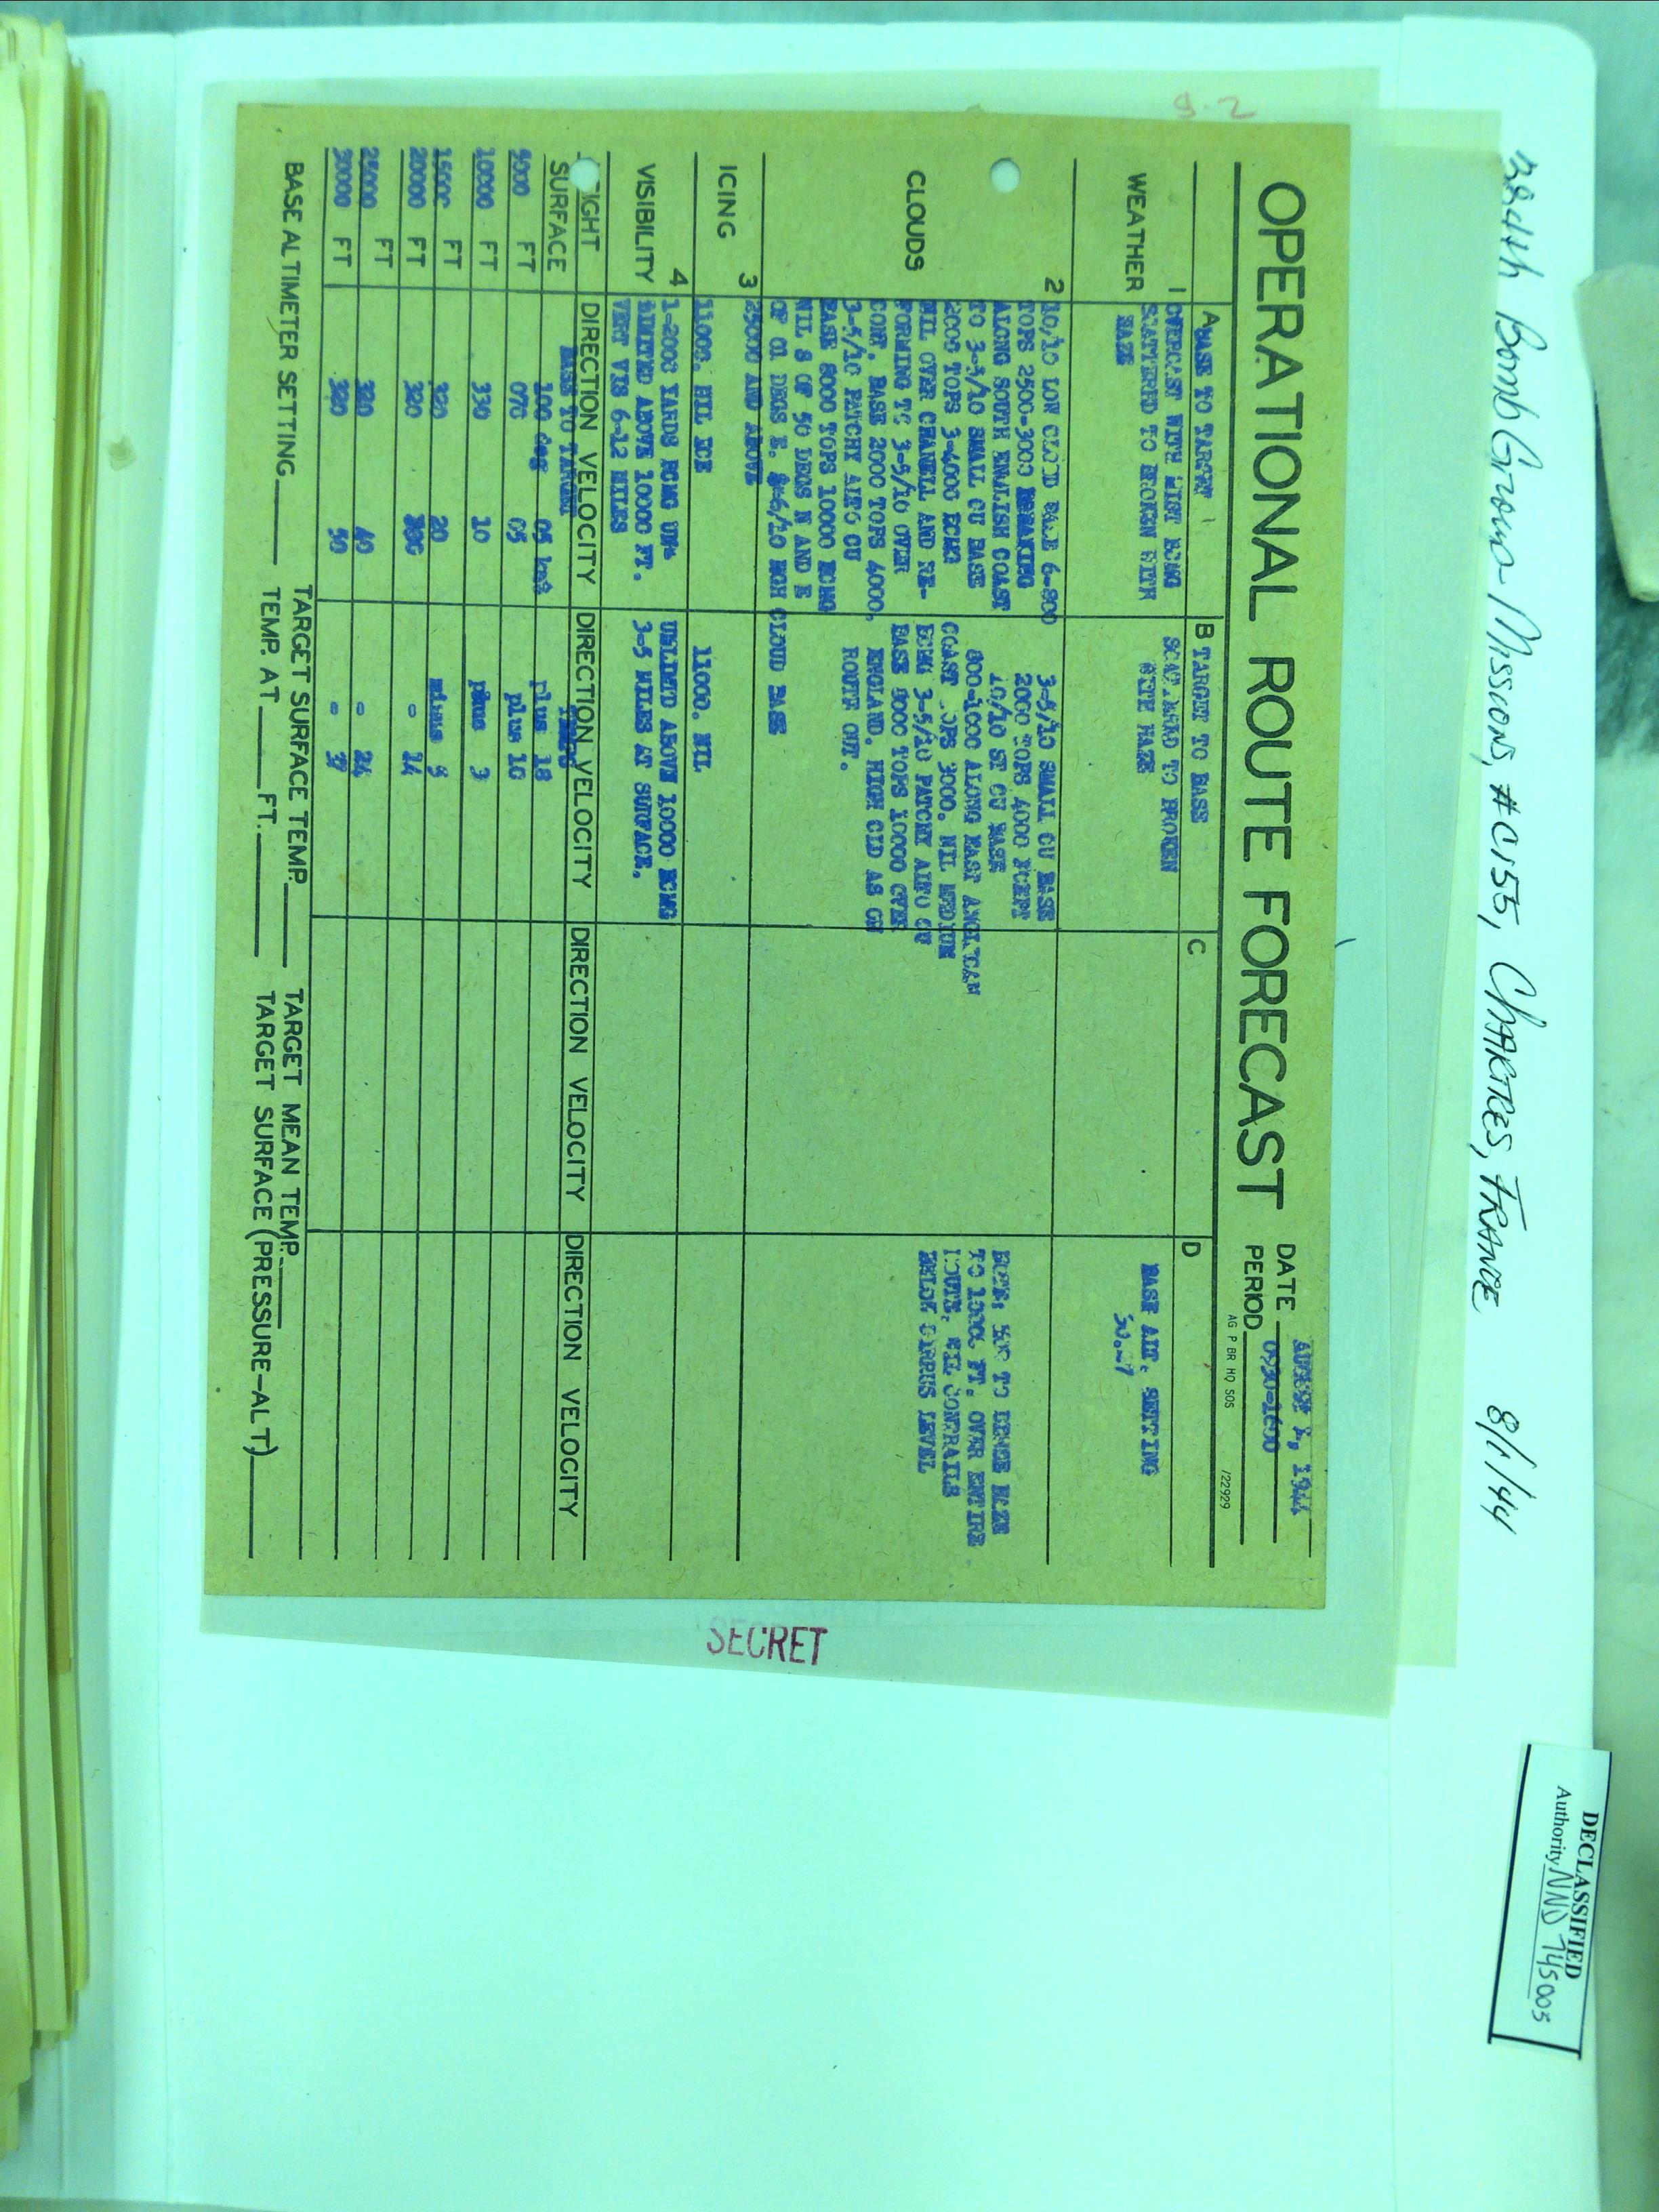 384th Bomb Group - Missions, #C155, Chartres, France 8/1/44
OPERATIONAL ROUTE FORECAST
DATE AUGUST 1, 1944
PERIOD 0930-1600
AG P BR HQ SOS 122929
A BASE TO TARGET
B TARGET TO BASE
C
D
1
WEATHER
OVERCAST WITH MIST BCMG
SCATTERED TO BROKEN WITH
HAZE
SCATTERED TO BROKEN
WITH HAZE
BASE ALT. SETTING
2
CLOUDS
10/10 LOW CLOUD BASE 6-800
TOPS 2500-3000 BREAKING
ALONG SOUTH ENGLISH COAST
TO 3-5/10 SMALL CU BASE
2000 TOPS 3-4000 BCMG
NIL OVER CHANELL AND RE-
FORMING TO 3-5/10 OVER
CONT. BASE 2000 TOPS 4000,
3-5/10 PATCHY ALTO CU
BASE 8000 TOPS 10000 BCMG
NIL S OF 50 DEGS N AND E
OF 01 DEGS E. 4-6/10 HGH CLOUD BASE
25000 AND ABOVE
3-5/10 SMALL CU BASE
2000 TOPS 4000 EXCEPT
10/10 ST CU BASE
800-1000 ALONG EAST ANGLICAN
COAST TOPS 3000. NIL MEDIUM
BCMG 3-5/10 PATCHY ALTO CU
BASE 8000 TOPS 10000 OVER
ENGLAND. HIGH CLD AS ON
ROUTE OUT.
NOTE: MOD TO DENSE HAZE
TO 10000 FT. OVER ENTIRE
ROUTE. NIL CONTRAILS
BELOW CIRRUS LEVEL
3
ICING
11000. NIL ICE
11000. NIL
4
VISIBILITY
1-2000 YARDS BCMG UN-
LIMITED ABOVE 10000 FT.
VERT VIS 6-12 MILES
UNLIMTD ABOVE 10000 BCMG
3-5 MILES AT SURFACE.
IGHT DIRECTION VELOCITY DIRECTION VELOCITY DIRECTION VELOCITY DIRECTION VELOCITY
BASE TO TARGET
SURFACE 100 deg 05 plus 18
5000 FT 070 05 plus 10
10000 FT 330 10 plus 3
15000 FT 320 20 minus
20000 FT 320 - 14
25000 FT 320 40 - 24
30000 FT 320 50 - 37
BASE ALTIMETER SETTING
TARGET SURFACE TEMP.
TARGET MEAN TEMP.
TEMP. AT FT.
TARGET SURFACE (PRESSURE-ALT.)
SECRET
DECLASSIFIED
Authority NND 745005